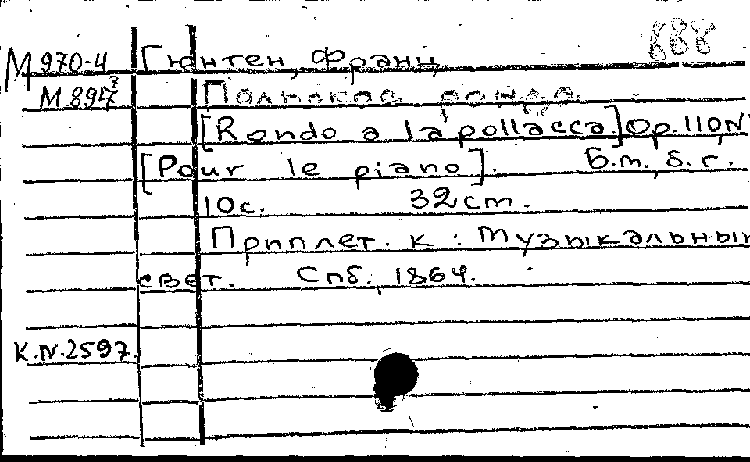 888
М 970-4 Гюнтен, Франц
М 897³ Польское рондо.
[Rondo a la pollacca.] Op. 110, N
[Pour le piano]. Б.т., б.г.
10с. 32 cm.
Приплет. к: Музыкальный
свет. Спб., 1864.
К.N.2597.